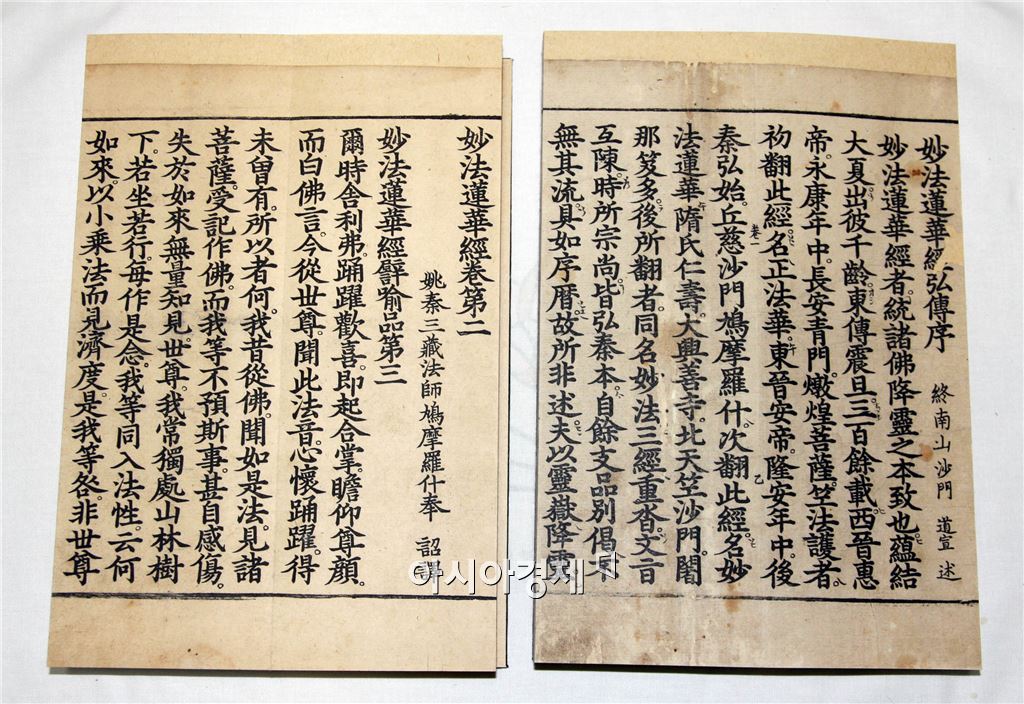 妙法蓮華經弘傳序
終南山沙門 道宣 述
妙法蓮華經者統諸佛降靈之本致也蘊結
大夏出彼千齡東傳震旦三百餘載西晉惠
帝永康年中長安青門燉煌菩薩竺法護者
初翻此經名正法華東晉安帝隆安年中後
秦弘始丘慈沙門鳩摩羅什次翻此經名妙
卷一
法蓮華隋氏仁壽大興善寺北天竺沙門闍
那笈多後所翻者同名妙法三經重沓文旨
互陳時所宗尚皆弘秦本自餘支品別偈不
無其流具如序曆故所非述夫以靈嶽降靈
妙法蓮華經卷第二
姚秦三藏法師鳩摩羅什奉 詔譯
妙法蓮華經譬喻品第三
爾時舍利弗踊躍歡喜即起合掌瞻仰尊顏
而白佛言今從世尊聞此法音心懷踊躍得
未曾有所以者何我昔從佛聞如是法見諸
菩薩受記作佛而我等不預斯事甚自感傷
失於如來無量知見世尊我常獨處山林樹
下若坐若行每作是念我等同入法性云何
如來以小乘法而見濟度是我等咎非世尊
아시아경제